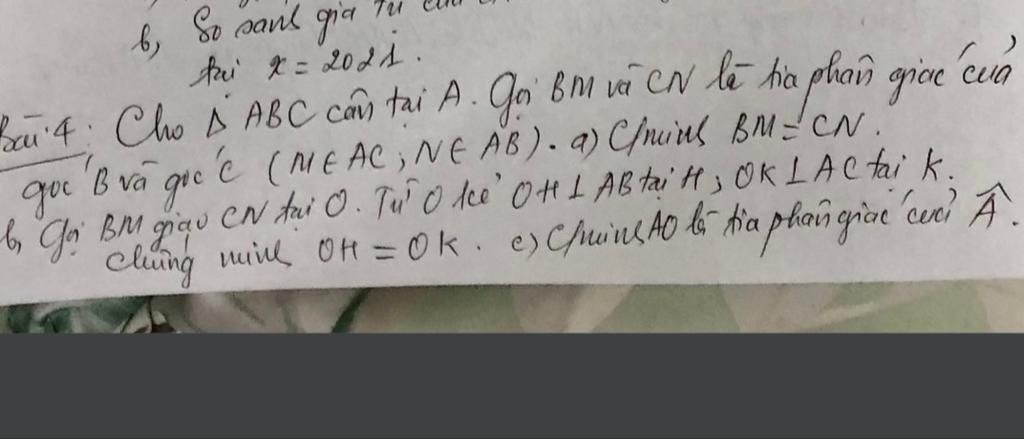 b, So sánh giá trị của
tại x = 2021.
Bài 4: Cho Δ ABC cân tại A. Gọi BM và CN là tia phân giác của
góc B và góc C (M ∈ AC; N ∈ AB). a) C/minh BM = CN.
b, Gọi BM giao CN tại O. Từ O kẻ OH ⊥ AB tại H; OK ⊥ AC tại K.
chứng minh OH = OK. c) C/minh AO là tia phân giác của Â.